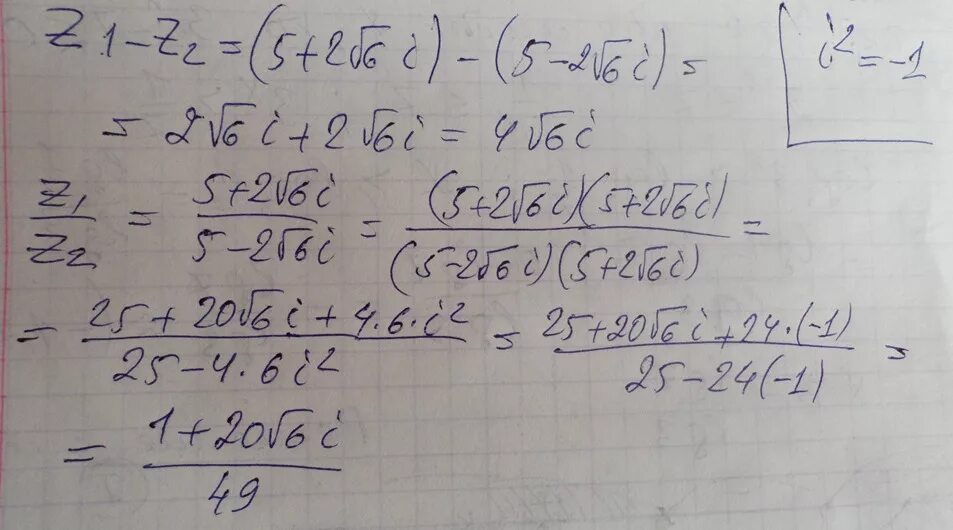 Z1-Z2=(5+2√6 i)-(5-2√6 i)=
i²=-1
=2√6 i+2√6 i=4√6 i
Z1/Z2=(5+2√6 i)/(5-2√6 i)=((5+2√6 i)(5+2√6 i))/((5-2√6 i)(5+2√6 i))=
=(25+20√6 i+4·6·i²)/(25-4·6i²)=(25+20√6 i+24·(-1))/(25-24(-1))=
=(1+20√6 i)/49